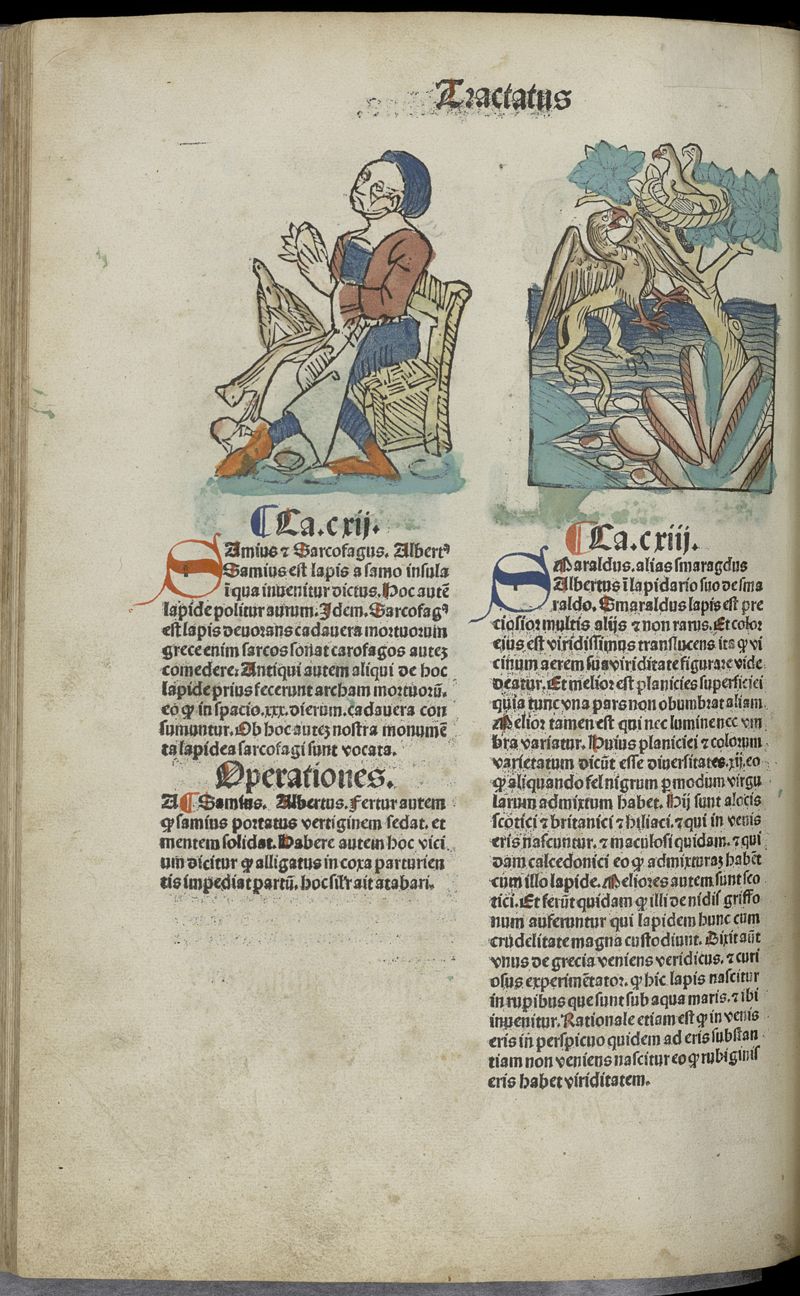 Tractatus
Ca.cxij.
SAmius ⁊ Sarcofagus. Albertꝰ
Samius est lapis a samo insula
ī qua inuenitur dictus. Hoc autē
lapide politur aurum. Idem. Sarcofagꝰ
est lapis deuorans cadauera mortuorum
grece enim sarcos sonat carofagos autez
comedere: Antiqui autem aliqui de hoc
lapide prius fecerunt archam mortuorū.
eo ꝙ in spacio.xxx.dierum.cadauera con
sumuntur. Ob hoc autez nostra monumē
ta lapidea sarcofagi sunt vocata.
Operationes.
A Samius. Albertus. Fertur autem
ꝙ samius portatus vertiginem sedat. et
mentem solidat. Habere autem hoc vici
um dicitur ꝙ alligatus in coxa parturien
tis impediat partū. hoc silʳ ait atabari.
Ca.cxiij.
SMaraldus.alias smaragdus
Albertus ī lapidario suo de sma
raldo. Smaraldus lapis est pre
ciosior multis alijs ⁊ non rarus. Et color
eius est viridissimus translucens ita ꝙ vi
cinum aerem sua viriditate figurare vide
deatur. Et melior est planicies superficiei
quia tunc vna pars non obumbrat aliam
Melior tamen est qui nec lumine nec vm
bra variatur. Huius planiciei ⁊ colorum
varietatum dicūt esse diuersitates.xij.eo
ꝙ aliquando fel nigrum ꝑ modum virgu
larum admixtum habet. Hij sunt alocis
scotici ⁊ britanici ⁊ hiliaci.⁊ qui in venis
eris nascuntur. ⁊ maculosi quidam. ⁊ qui
dam calcedonici eo ꝙ admixturaz habēt
cum illo lapide. Meliores autem sunt sco
tici. Et ferūt quidam ꝙ illi de nidis griffo
num auferuntur qui lapidem hunc cum
crudelitate magna custodiunt. Dixit aūt
vnus de grecia veniens veridicus. ⁊ curi
osus experimētator. ꝙ hic lapis nascitur
in rupibus que sunt sub aqua maris. ⁊ ibi
inuenitur. Rationale etiam est ꝙ in venis
eris in perspicuo quidem ad eris substan
tiam non veniens nascitur eo ꝙ rubiginis
eris habet viriditatem.